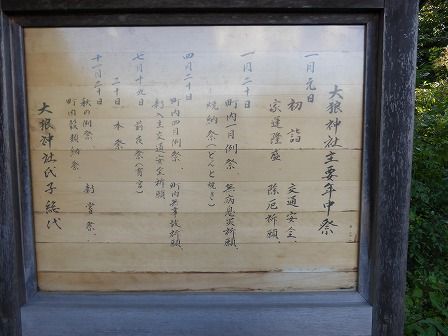 大狼神社主要年中祭
一月元日
初詣、交通安全、
家運隆盛 除厄祈願、
一月二十日
町内一月例祭 無病息災祈願、
焼納祭(どんと焼き)
四月二十日
町内四月例祭、町内無事故祈願、
新入生交通安全祈願
七月十九日 前夜祭(宵宮)
二十日 本祭
十一月二十日
秋の例祭 新嘗祭、
町内穀類納祭、
大狼神社氏子総代